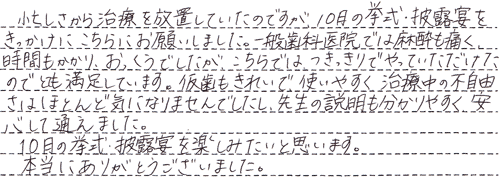 忙しさから治療を放置していたのですが、10月の挙式・披露宴を
きっかけにこちらにお願いしました。一般歯科医院では麻酔も痛く、
時間もかかり、おっくうでしたが、こちらではつきっきりでやっていただけた
のでとても満足しています。仮歯もきれいで使いやすく治療中の不自由
さはほとんど気になりませんでしたし、先生の説明も分かりやすく安
心して通えました。
10月の挙式・披露宴を楽しみたいと思います。
本当にありがとうございました。